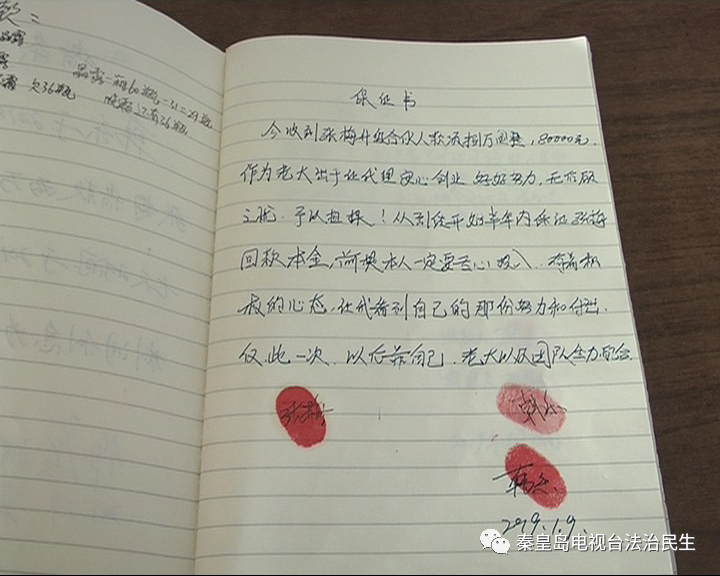 款：
品露一箱60瓶-31=29瓶
欠36瓶
晚霜还有36瓶
保证书
今收到张梅升级合伙人款项捌万圆整，80000元.
作为老大出于让代理安心创业 好好努力，无后顾
之忧.予以担保！从到经开始半年内保证张梅
回款本金，前提本人一定要专心投入.有着积
极的心态，让我看到自己的那份努力和付出.
仅此一次.以后靠自己.老大以及团队全力配合.
张梅
2019.1.9.
秦皇岛电视台法治民生